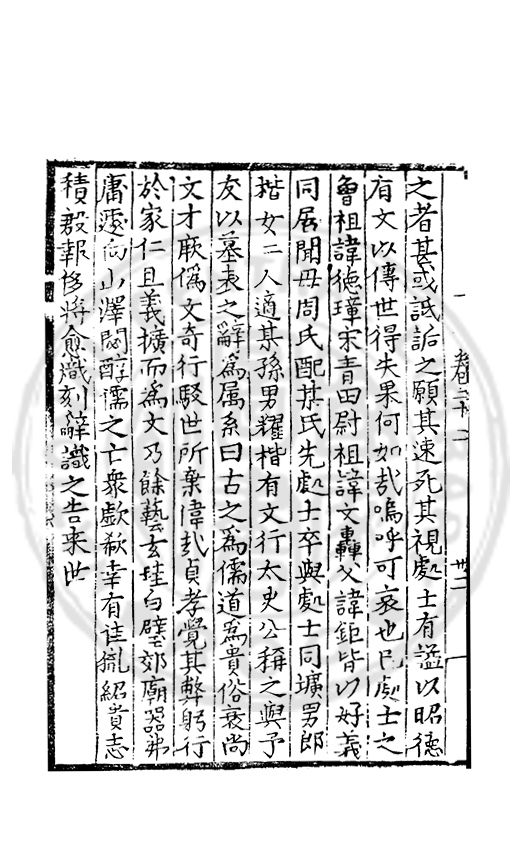 卷二十二
卅二
之者甚或詆詬之願其速死其視處士有謚以昭德
有文以傳世得失果何如哉嗚呼可哀也已處士之
曾祖諱德璋宋青田尉祖諱文轟父諱鉅皆以好義
同居聞母周氏配某氏先處士卒與處士同壙男郎
楷女二人適某孫男耀楷有文行太史公稱之與予
友以墓表之辭為属系曰古之為儒道為貴俗衰尚
文才厥偽文奇行駁世所棄偉哉貞孝覺其弊躬行
於家仁且義擴而為文乃餘藝玄珪白璧郊廟器弗
庸遯向山澤閟醇儒之亡衆歔欷幸有佳胤紹貴志
積殷報侈將愈熾刻辭識之告来世